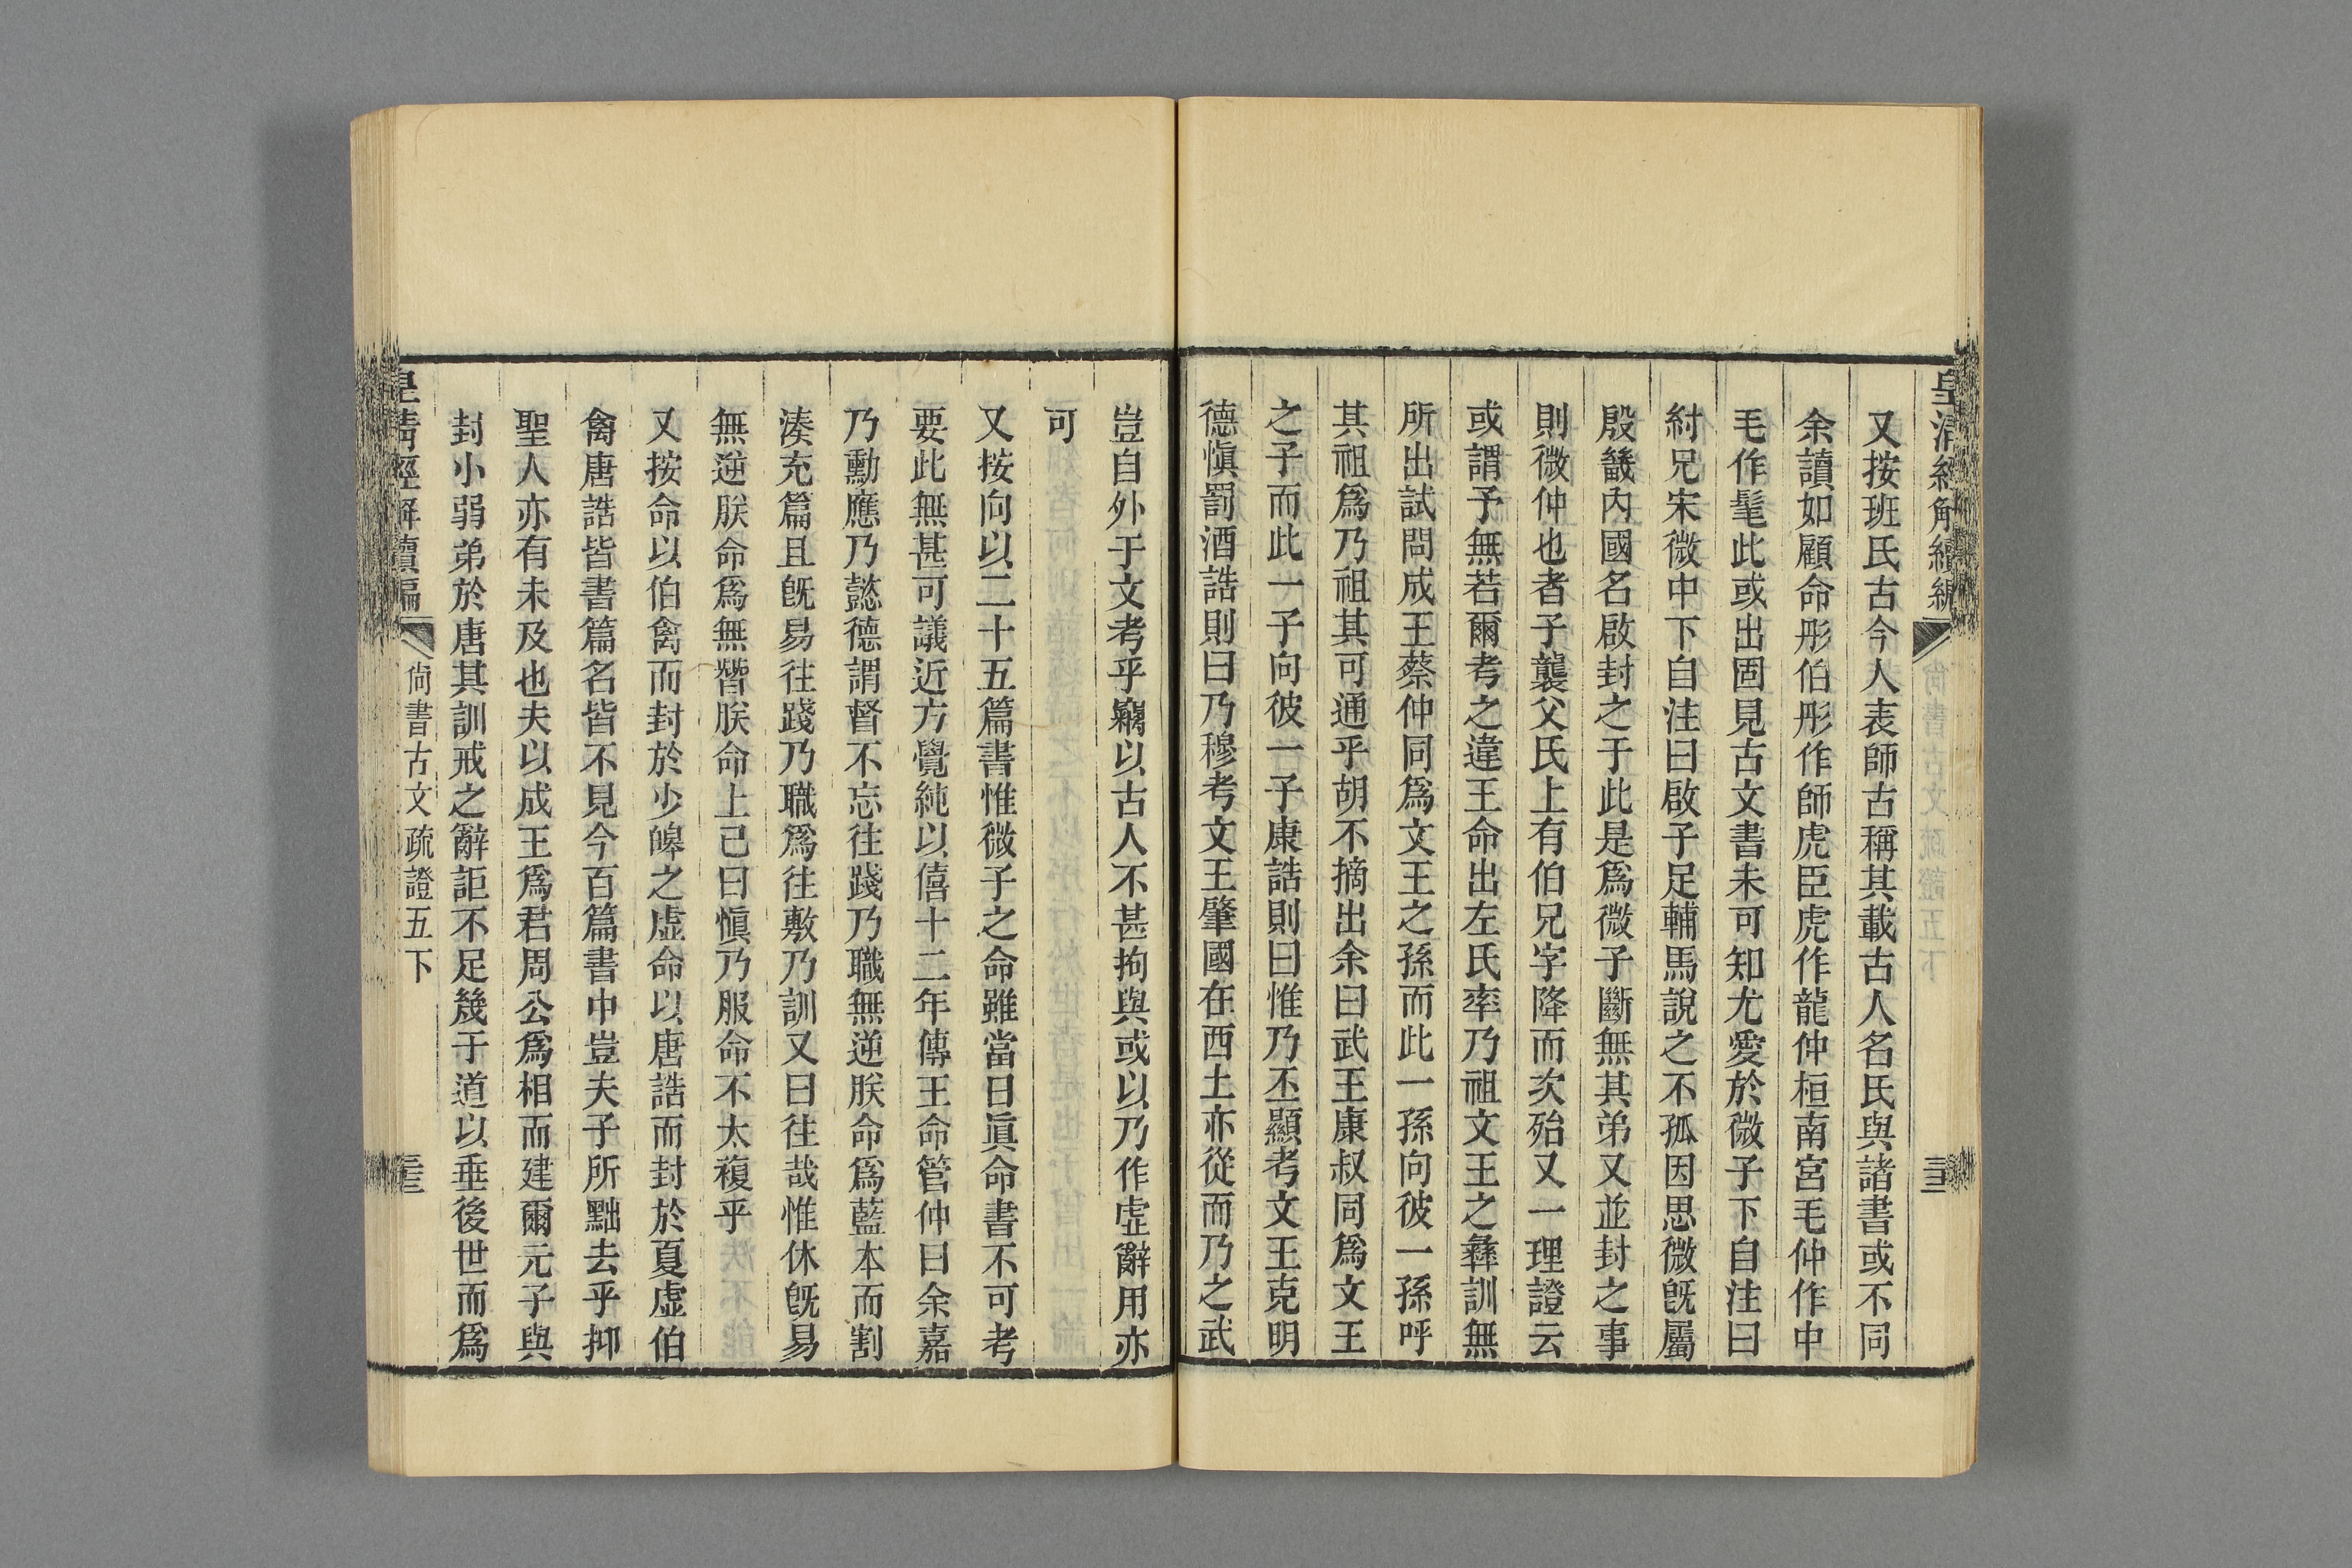 皇清經解續編
又按班氏古今人表師古稱其載古人名氏與諸書或不同
余讀如顧命彤伯彤作師虎臣虎作龍仲桓南宮毛仲作中
毛作髦此或出固見古文書未可知尤愛於微子下自注曰
紂兄宋微中下自注曰啟子足輔馬說之不孤因思微既屬
殷畿內國名啟封之于此是爲微子斷無其弟又並封之事
則微仲也者子襲父氏上有伯兄字降而次殆又一理證云
或謂予無若爾考之違王命出左氏率乃祖文王之彝訓無
所出試問成王蔡仲同爲文王之孫而此一孫向彼一孫呼
其祖爲乃祖其可通乎胡不摘出余曰武王康叔同爲文王
之子而此一子向彼一子康誥則曰惟乃丕顯考文王克明
德愼罰酒誥則曰乃穆考文王肇國在西土亦從而乃之武
豈自外于文考乎竊以古人不甚拘與或以乃作虛辭用亦
可
又按向以二十五篇書惟微子之命雖當日眞命書不可考
要此無甚可議近方覺純以僖十二年傳王命管仲曰余嘉
乃勳應乃懿德謂督不忘往踐乃職無逆朕命爲藍本而割
湊充篇且既易往踐乃職爲往敷乃訓又曰往哉惟休既易
無逆朕命爲無替朕命上已曰愼乃服命不太複乎
又按命以伯禽而封於少皞之虛命以唐誥而封於夏虛伯
禽唐誥皆書篇名皆不見今百篇書中豈夫子所黜去乎抑
聖人亦有未及也夫以成王爲君周公爲相而建爾元子與
封小弱弟於唐其訓戒之辭詎不足幾于道以垂後世而爲
皇清經解續編
尙書古文疏證五下